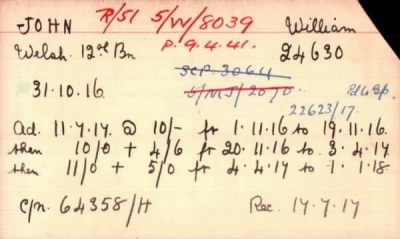 JOHN R/51 5/W/8039 William
Welsh. 12th Bn P. 9.4.41. 24630
SCP. 3064
31.10.16 5/MS/20/0
22623/17.
Ad. 11.7.17. @ 10/- fr 1.11.16 to 19.11.16.
then 10/0 + 4/6 fr 20.11.16 to 3.4.17.
then 11/0 + 5/0 fr 4.4.17 to 1.1.18
C/n. 64358/H Rec. 17.7.17